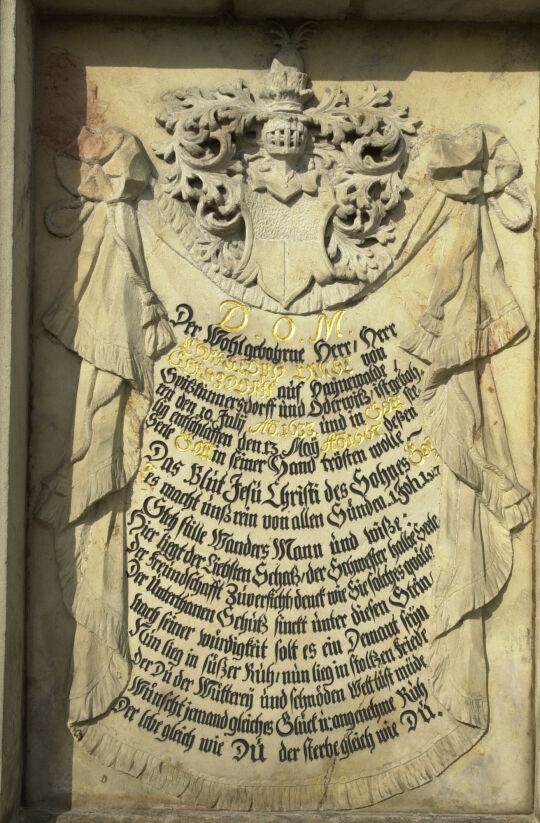 D. O. M.
Der Wohlgebohrne Herr/ Herr
von
auf Hainewalde/
Spitzkunnersdorff und Oderwitz/ ist geboh/
ren den 10. July AÕ 1633. und in GOtt se/
lig entschlaffen den 13. May AÕ deßen
Sele Gott in seiner Hand trösten wolle.
Das Blut Jesu Christi des Sohnes Got
tes macht unß rein von allen Sündn. 1. Joh. 1. v. 7
Steh stille Wanders Mann und wiße:
Hier liegt der Liebsten Schatz/ der Schwester halbe Seele
Der Freundschafft Zuversicht/ denck wie Sie solches quäle?
Der Unterthanen Schutz sinckt unter diesen Stein/
nach seiner würdigkeit solt es ein Demant seyn
Nun lieg in süßer Ruh/ nun lieg in stoltzen Friede
der Du der Wütterey und schnöden Welt bist müde
Wünscht jemand gleiches Glück u: angenehme Ruh
Der lebe gleich wie Du der sterbe gleich wie Du.